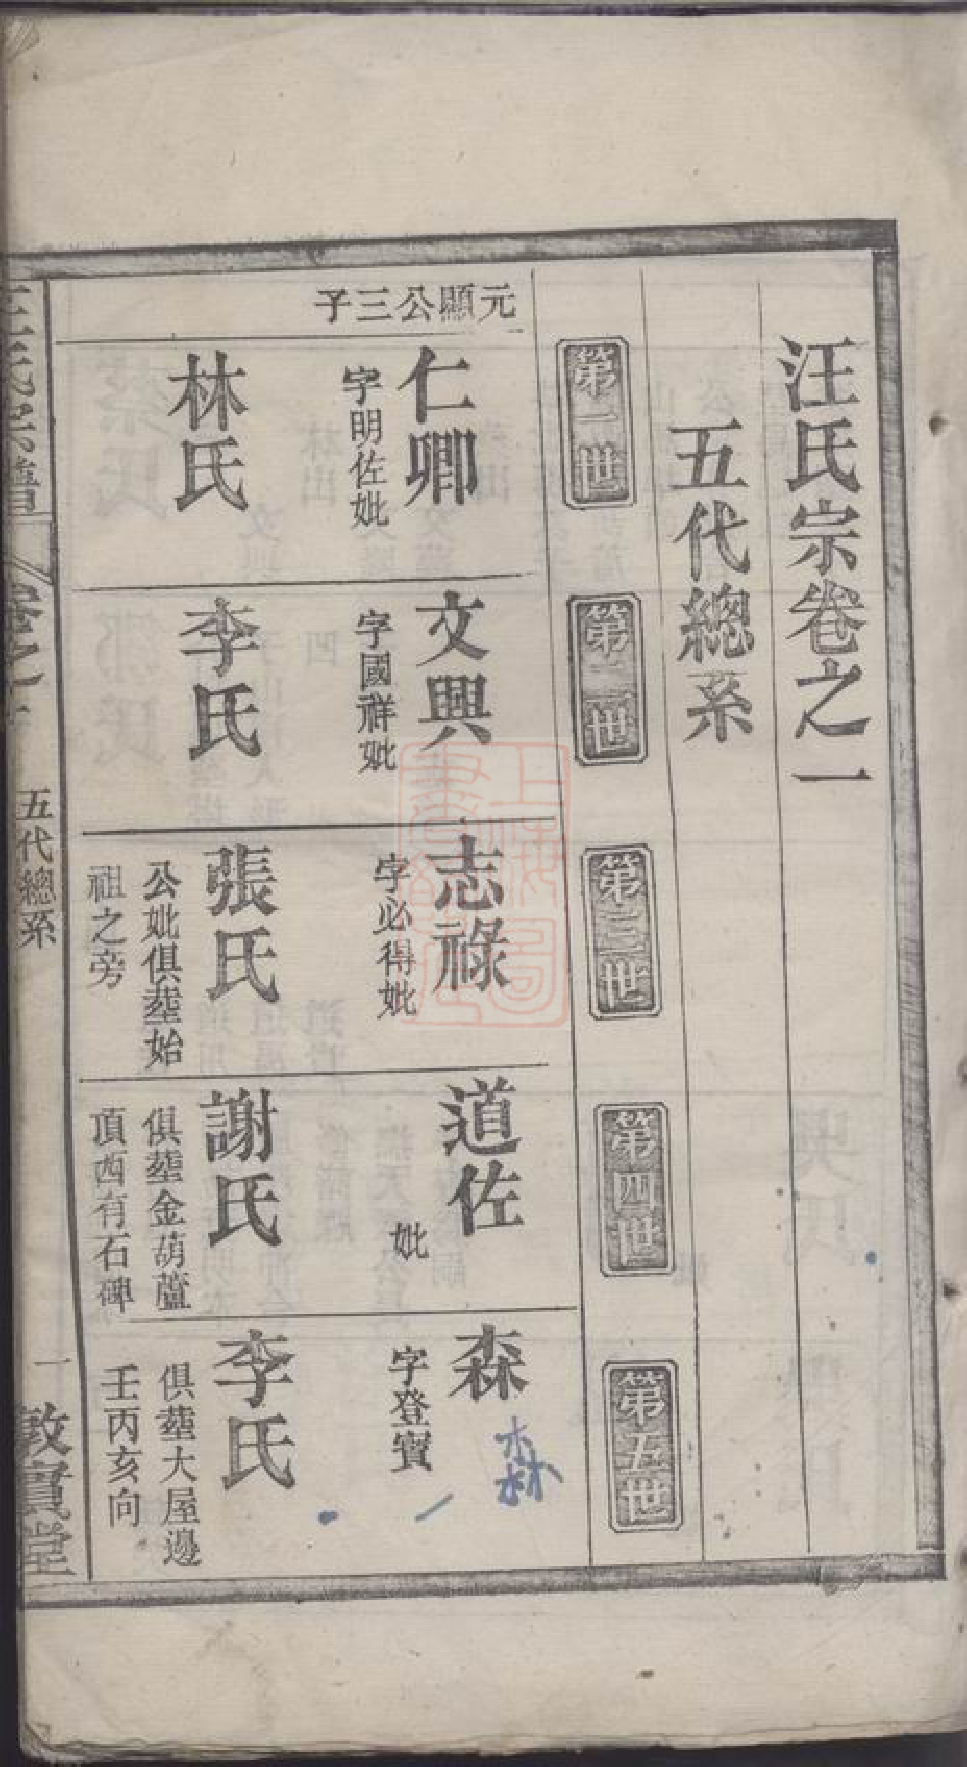 汪氏宗卷之一
五代總系
第一世
第二世
第三世
第四世
第五世
元顯公三子
仁卿
字明佐妣
林氏
文興
字國祥妣
李氏
志祿
字必得妣
張氏
公妣俱塟始
祖之旁
道佐
妣
謝氏
俱塟金葫蘆
頂西有石碑
森
字登寶
森
李氏
俱塟大屋邊
壬丙亥向
五代總系
一
敦實堂